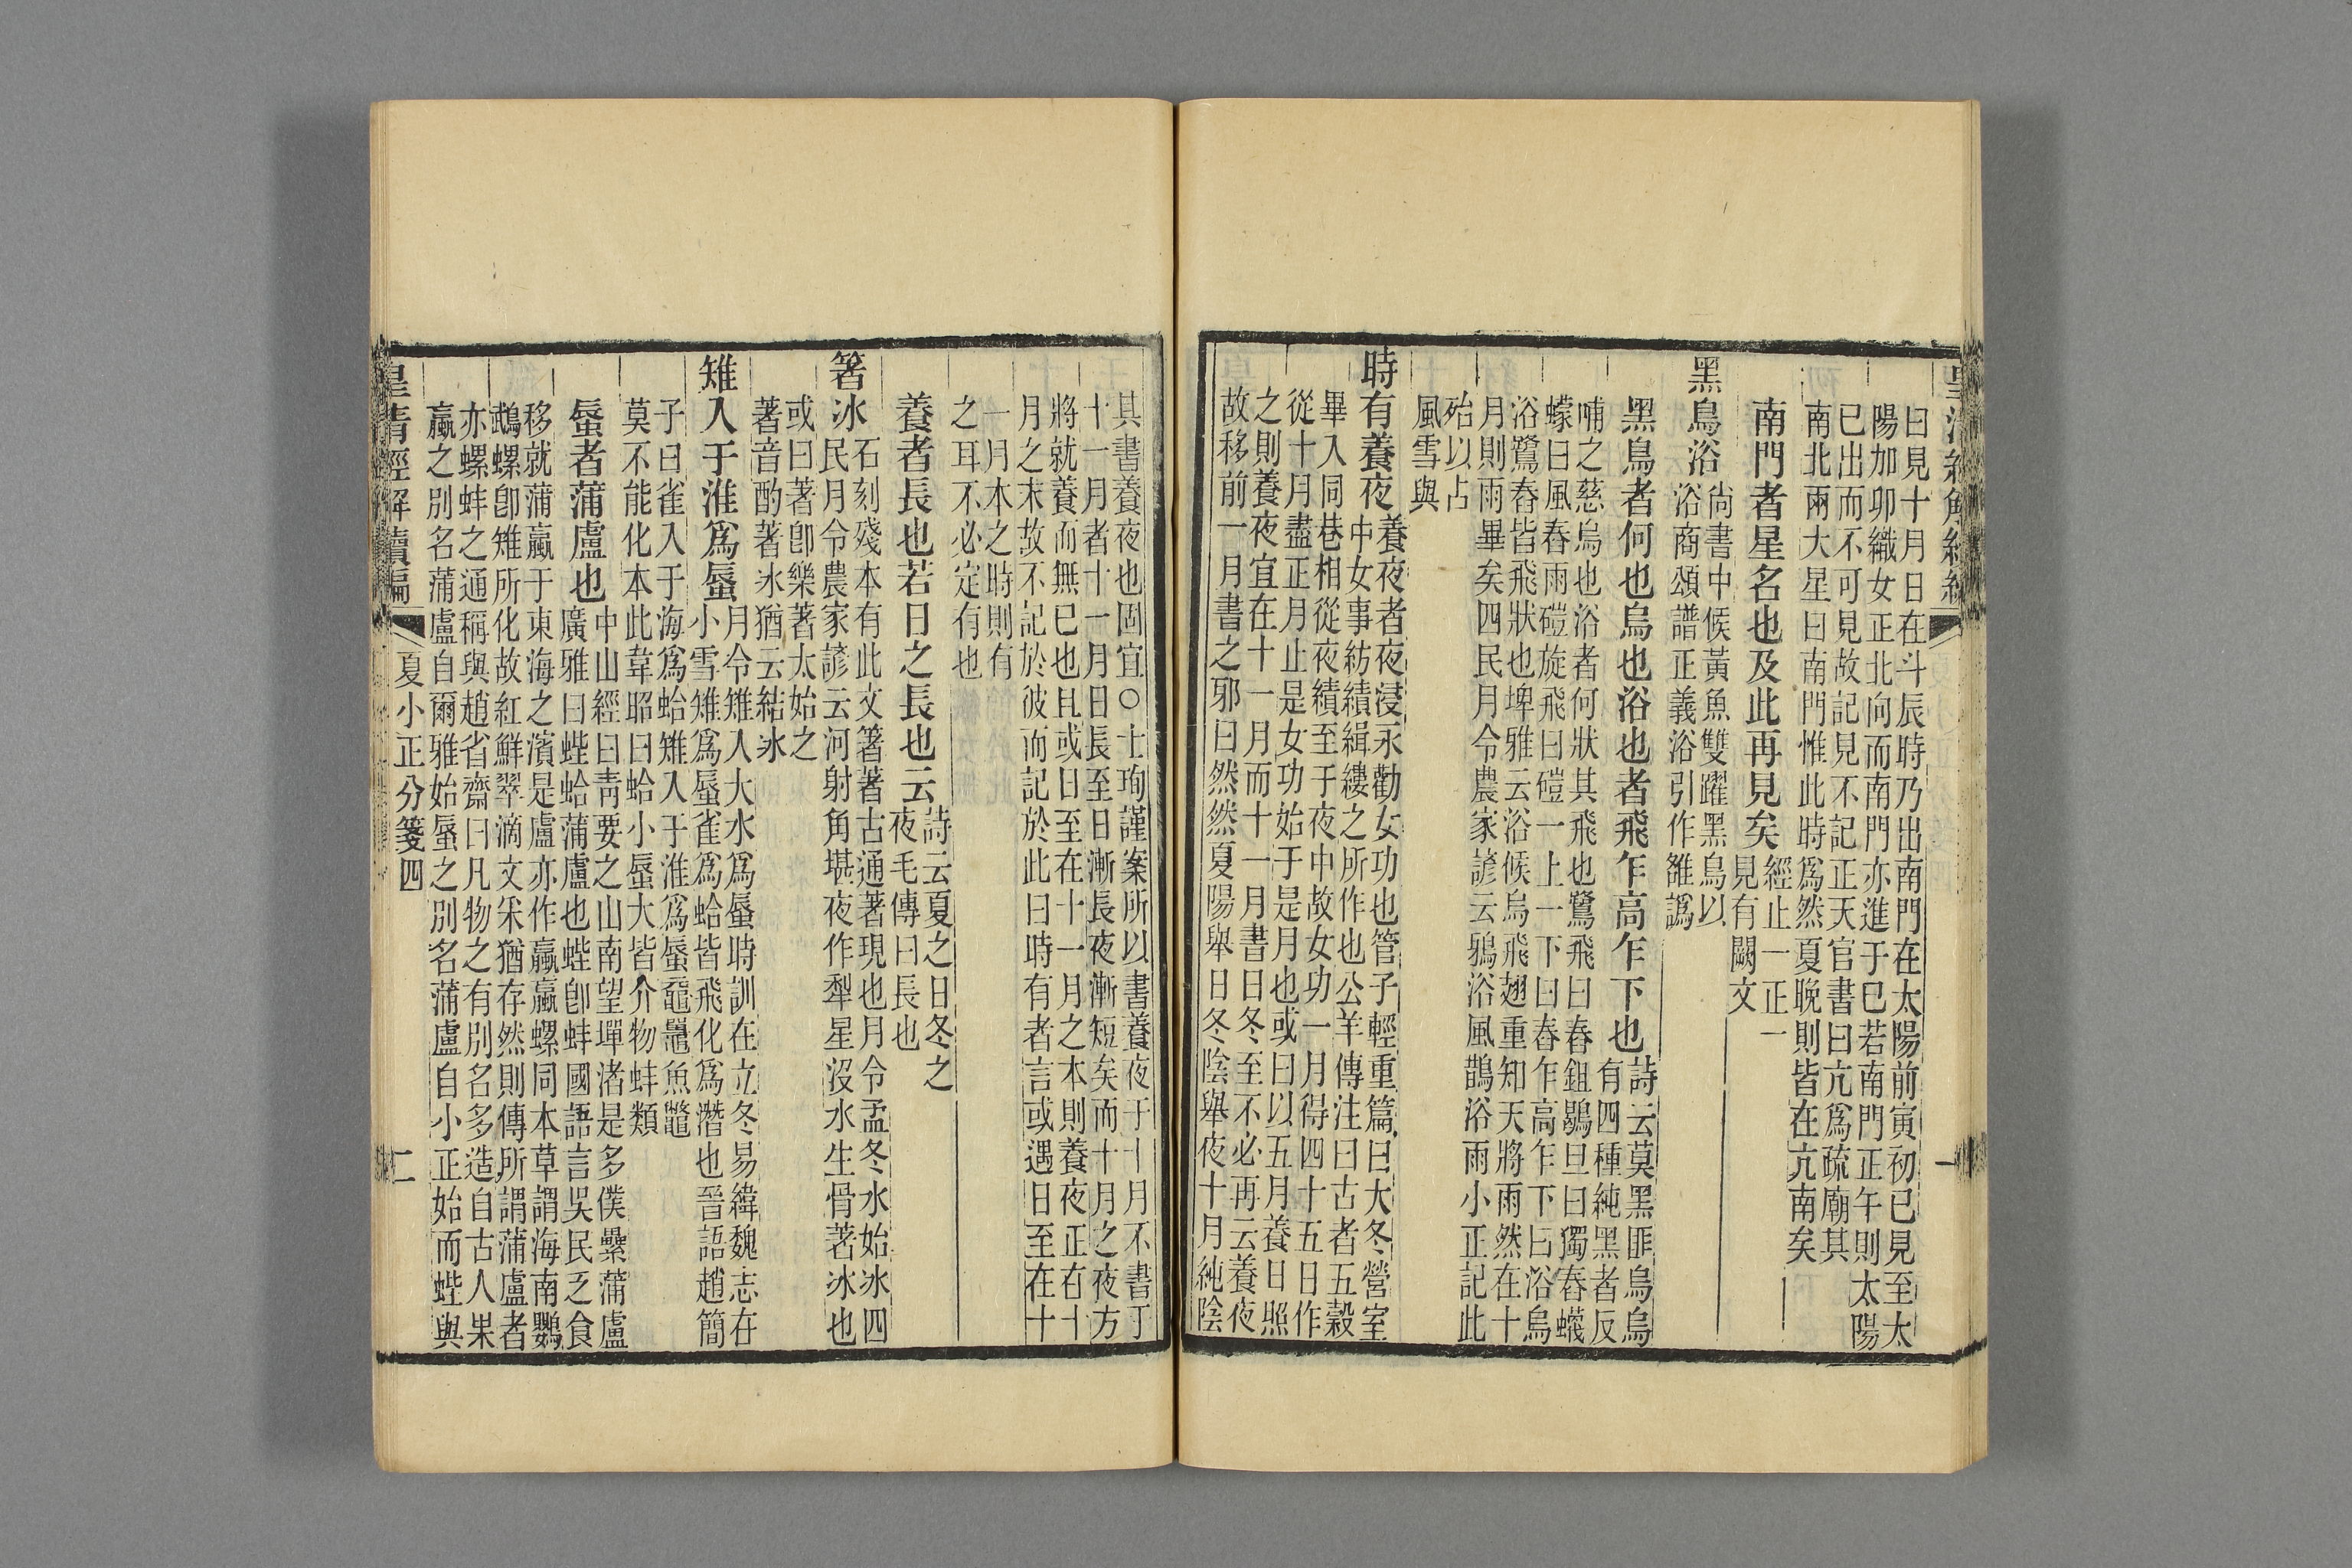 曰見十月日在斗辰時乃出南門在太陽前寅初已見至太
陽加卯織女正北向而南門亦進于巳若南門正午則太陽
已出而不可見故記見不記正天官書曰亢爲疏廟其
南北兩大星曰南門惟此時爲然夏晚則皆在亢南矣
南門者星名也及此再見矣
經止一正一
見有闕文
黑鳥浴
尚書中候黃魚雙躍黑鳥以
浴商頌譜正義浴引作雒譌
黑鳥者何也烏也浴也者飛乍高乍下也
詩云莫黑匪烏烏
有四種純黑者反
哺之慈烏也浴者何狀其飛也鷺飛曰舂鉏鶡旦曰獨舂蠛
蠓曰風舂雨磑旋飛曰磑一上一下曰舂乍高乍下曰浴烏
浴鷺舂皆飛狀也埤雅云浴候烏飛翅重知天將雨然在十
月則雨畢矣四民月令農家諺云鴉浴風鵲浴雨小正記此
殆以占
風雪與
時有養夜
養夜者夜浸永勸女功也管子輕重篇曰大冬營室
中女事紡績緝縷之所作也公羊傳注曰古者五穀
畢入同巷相從夜績至于夜中故女功一月得四十五日作
從十月盡正月止是女功始于是月也或曰以五月養日照
之則養夜宜在十一月而十一月書日冬至不必再云養夜
故移前一月書之邪曰然然夏陽舉日冬陰舉夜十月純陰
其書養夜也固宜○士珣謹案所以書養夜于十月不書于
十一月者十一月日長至日漸長夜漸短矣而十月之夜方
將就養而無已也且或日至在十一月之本則養夜正在十
月之末故不記於彼而記於此曰時有者言或遇日至在十
一月本之時則有
之耳不必定有也
養者長也若日之長也云
詩云夏之日冬之
夜毛傳曰長也
箸冰
石刻殘本有此文箸著古通著現也月令孟冬水始冰四
民月令農家諺云河射角堪夜作犁星沒水生骨著冰也
或曰著卽樂著太始之
著音酌著冰猶云結冰
雉入于淮爲蜃
月令雉入大水爲蜃時訓在立冬易緯魏志在
小雪雉爲蜃雀爲蛤皆飛化爲潛也晉語趙簡
子曰雀入于海爲蛤雉入于淮爲蜃黿鼉魚鼈
莫不能化本此韋昭曰蛤小蜃大皆介物蚌類
蜃者蒲盧也
中山經曰靑要之山南望墠渚是多僕纍蒲盧
廣雅曰蜌蛤蒲盧也蜌卽蚌國語言吳民乏食
移就蒲蠃于東海之濱是盧亦作蠃蠃螺同本草謂海南鸚
鵡螺卽雉所化故紅鮮翠滴文采猶存然則傳所謂蒲盧者
亦螺蚌之通稱與趙省齋曰凡物之有別名多造自古人果
蠃之別名蒲盧自爾雅始蜃之別名蒲盧自小正始而蜌與
皇淸經解續編
夏小正分箋四
二